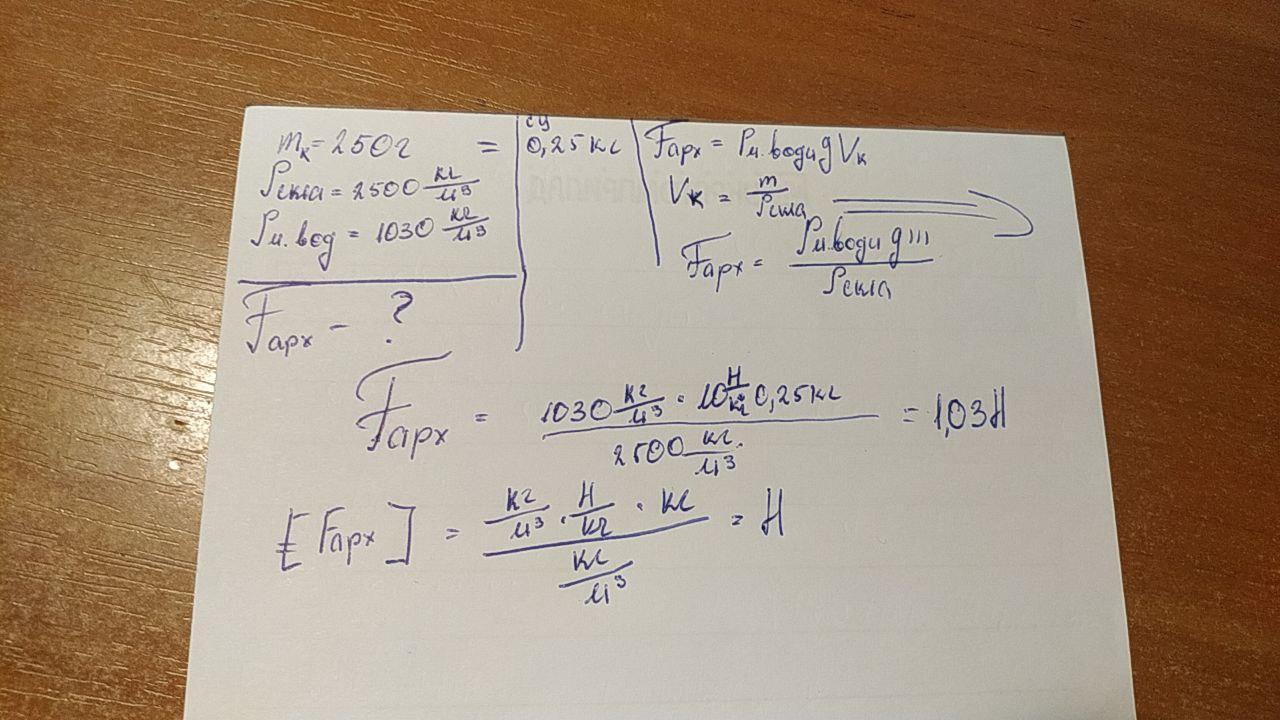 m_к = 250г = 0,25 кг
СИ
ρскла = 2500 кг/м³
ρм.вод = 1030 кг/м³
Fарх – ?
Fарх = ρм.води g Vк
Vк = m/ρскла
Fарх = ρм.води g m/ρскла
Fарх = 1030 кг/м³ · 10 Н/кг 0,25 кг / 2500 кг/м³ = 1,03 Н
[Fарх] = кг/м³ · Н/кг · кг / кг/м³ = Н